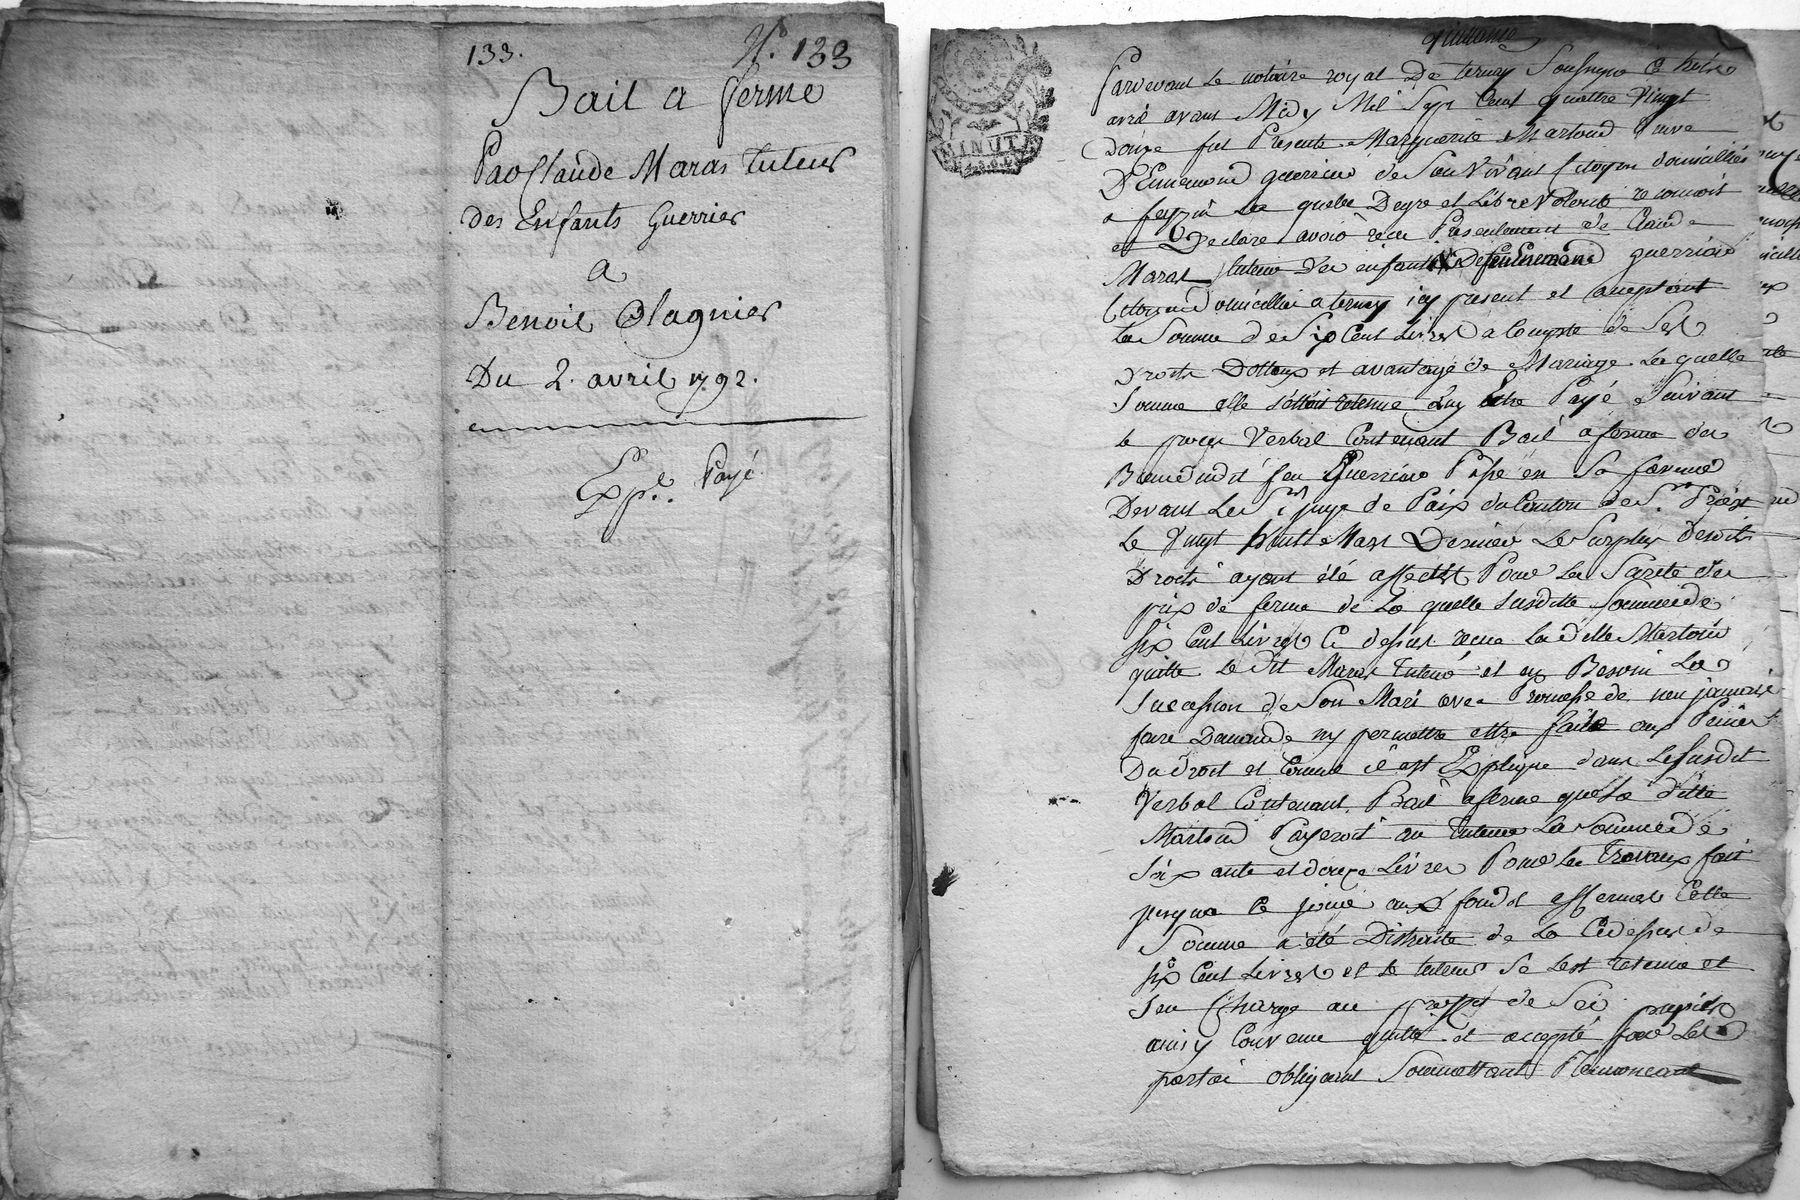 133. N.° 133
Bail a ferme
Par Claude Maras Tuteur
des Enfants Guerrier
a
Benoit Olagnier
Du 2. avril 1792.
Exp.é Payé
quittance
MINUT
Pardevant le notaire royal De ternay Sousigné le
avril avant Midy Mil Sept Cent quattre Vingt
Douze fut Presente Marguerite Martoud veuve
D'Ennemond guerrier de Son Vivant Citoyen domicillié
a feyzin la quelle Degré et Libre Volonté reconnoit
et Declare avoir recu Presentement de Claude
Maras tuteur Des enfants De feu Enemond guerrier
Citoyen Domicillié a ternay icy present et acceptant
la Somme de Six Cent Livres a Compte de Ses
Droits Dottaux et avantage de Mariage la quelle
Somme elle s'étoit retenue d'luy Etre Payé Suivant
le proces Verbal Contenant Bail a ferme des
feu Guerrier Passé en Sa faveur
Devant le Sr juge de Paix du Canton de St. Priest
le Vingt huit Mars Dernier le Surplus desdits
Droits ayant été affecté Pour la Sureté du
prix de ferme de la quelle Susditte Somme de
Six Cent Livres Cy dessus recue la ditte Martoud
quitte le dit Maras tuteur et en Besoin la
Succession de Son Mari avec Promesse de n'en jamais
faire Demande ny permettre ettre faite aux Peines
Du Droit et Comme il est Explique dans le Susdit
Verbal Contenant Bail a ferme que la ditte
Martoud Payeroit au tuteur la Somme de
Soixante et douze Livres Pour les Travaux fait
jusqua ce jour aux fonds affermes Cette
Somme a été Distraite de la Cy dessus de
Six Cent Livres et le tuteur se l'est retenue et
s'en Charge au proffit de Ses pupilles
ainsy Convenu quitté et accepté par les
partie obligeant Soumettant Renoncant